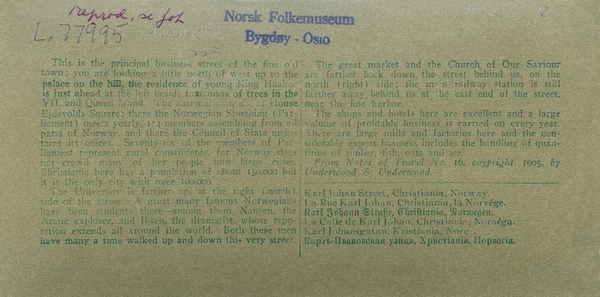 reprod. se foto
L. 77995
Norsk Folkemuseum
Bygdøy - Oslo
This is the principal business street of the fine old
town; you are looking a little north of west up to the
palace on the hill, the residence of young King Haakon
is just ahead at the left beside that mass of trees in the
VII. and Queen Maud. The National House
Ejdsvolds Square; there the Norwegian Storthing (Par-
liament) meets yearly, 114 members assembling from all
parts of Norway, and there the Council of State main-
tains its offices. Seventy-six of the members of Par-
liament represent rural constituents, for Norway does
not crowd many of her people into large cities.
Christiania here has a population of about 150,000 but
it is the only city with over 100,000.
The University is farther up, at the right (north)
side of the street. A great many famous Norwegians
have been students there—among them Nansen, the
Arctic explorer, and Ibsen, the dramatist, whose repu-
tation extends all around the world. Both these men
have many a time walked up and down this very street.
The great market and the Church of Our Saviour
are farther back down the street behind us, on the
north (right) side; the main railway station is still
farther away behind us at the east end of the street,
near the fine harbor.
The shops and hotels here are excellent and a large
volume of profitable business is carried on every year.
There are large mills and factories here and the con-
siderable export business includes the handling of quan-
tities of timber, fish, oats and ice.
From Notes of Travel No. 16, copyright, 1905, by
Underwood & Underwood.
Karl Johan Street, Christiania, Norway.
La Rue Karl Johan, Christiania, la Norvège.
Karl Johann Straße, Christiania, Norwegen.
La Calle de Karl Johan, Christiania, Noruega.
Karl Johansgatan, Kristiania, Norge.
Карлъ-Ивановская улица, Христіанія, Норвегія.